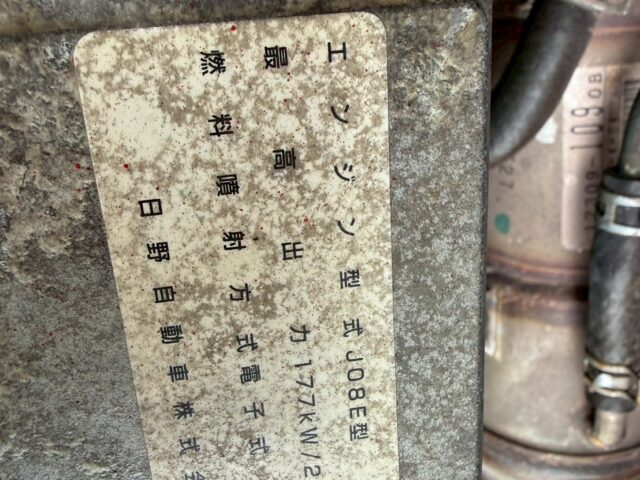 エンジン型式J08E型
最高出力177kW/2
燃料噴射方式電子式
日野自動車株式会
6010B